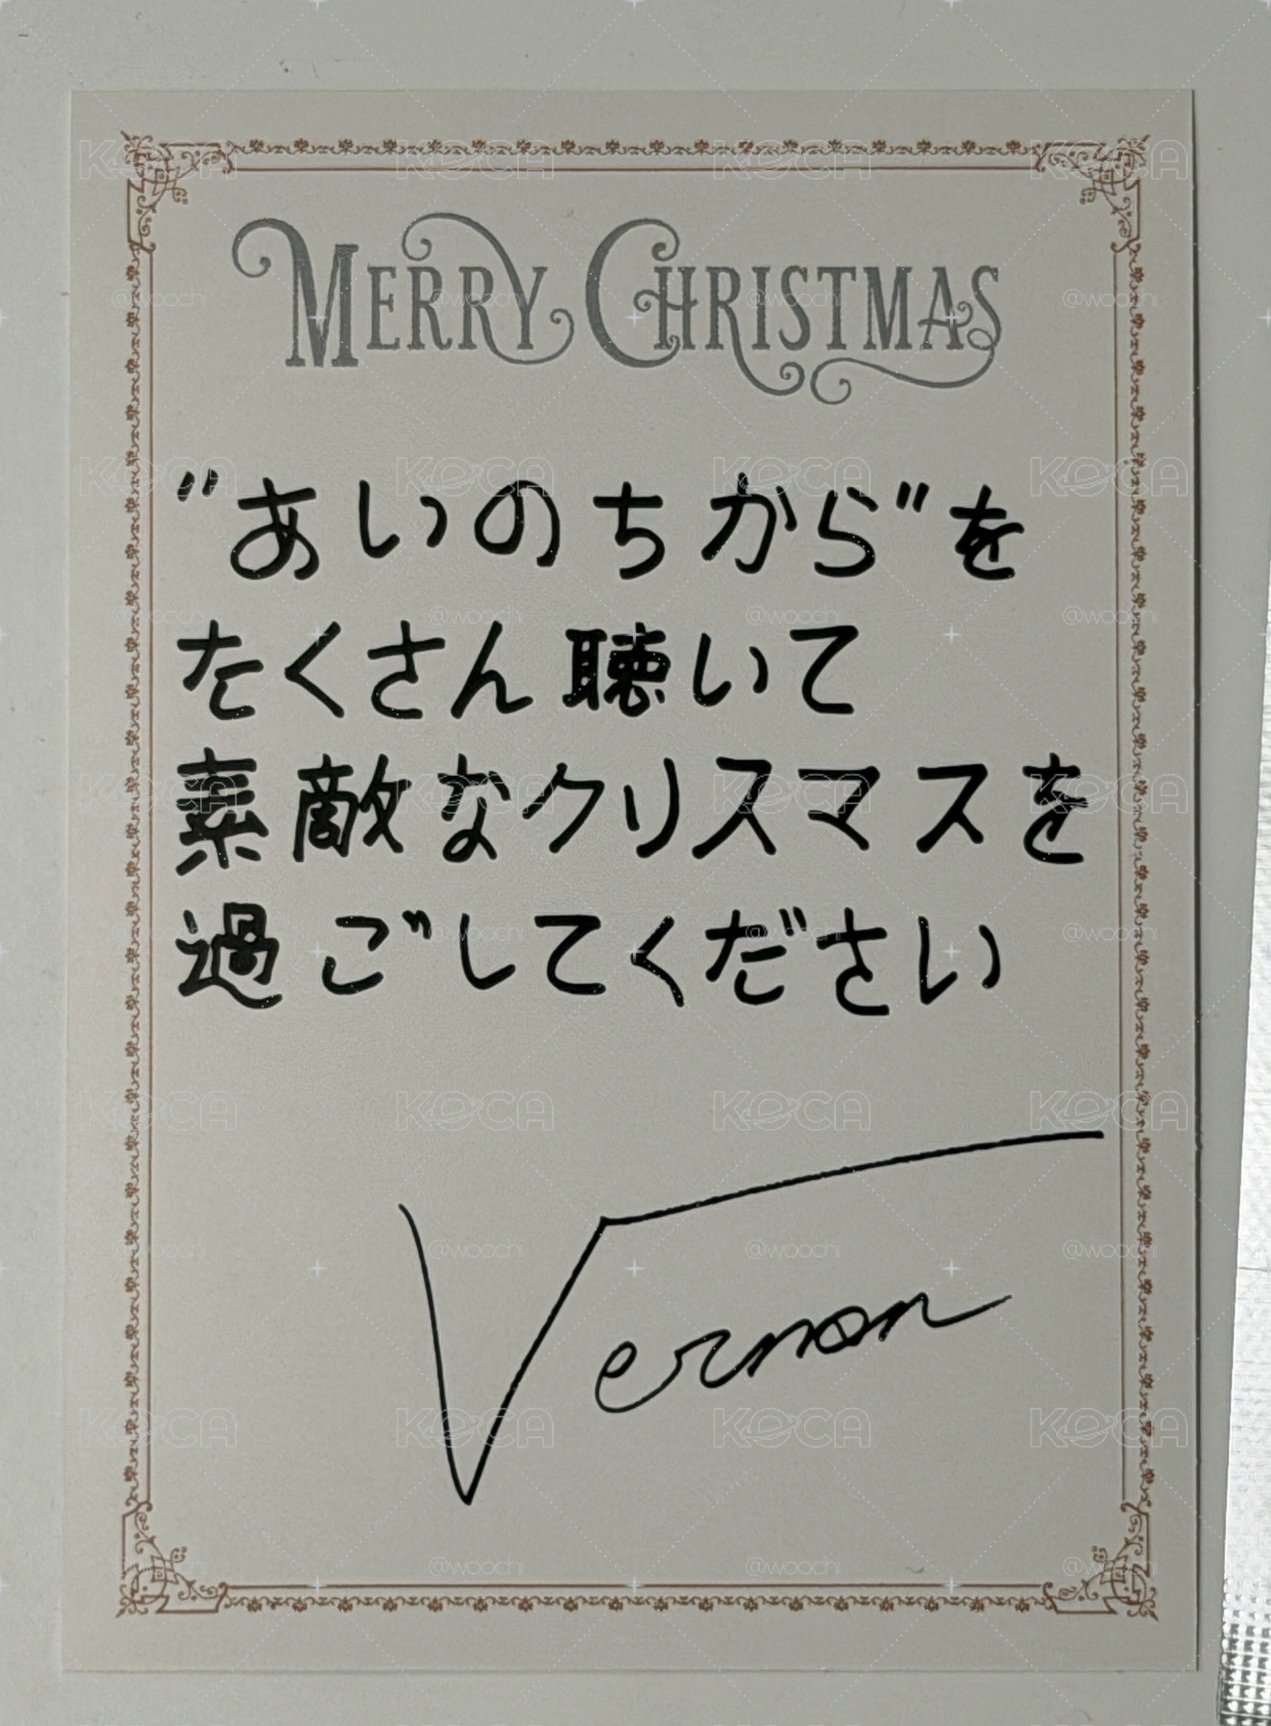 MERRY CHRISTMAS
"あいのちから"を
たくさん聴いて
素敵なクリスマスを
過ごしてください
Vernon
KOCA
@woochi